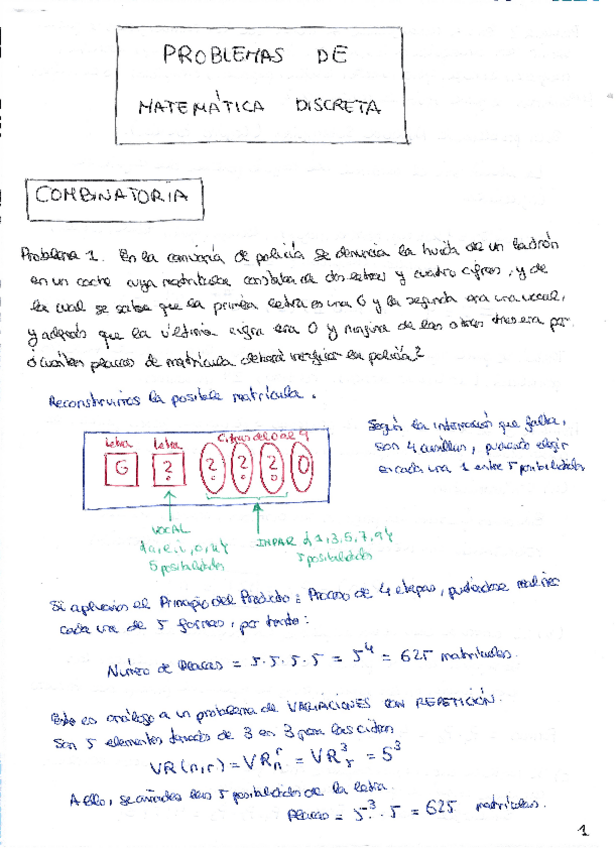 PROBLEMAS DE
MATEMÁTICA DISCRETA
COMBINATORIA
Problema 1. En la comisaría de policía se denuncia la huida de un ladrón
en un coche cuya matrícula constaba de dos letras y cuatro cifras, y de
la cual se sabe que la primera letra es una G y la segunda era una vocal,
y además que la última cifra era 0 y ninguna de las otras tres era par
¿cuántas placas de matrícula deberá verificar la policía?
Reconstruimos la posible matrícula.
Según la información que falta,
son 4 casillas, pudiendo elegir
en cada una 1 entre 5 posibilidades
Letra Letra Cifras del 0 al 9
G ? ? ? ? 0
VOCAL
{a, e, i, o, u}
5 posibilidades
IMPAR {1, 3, 5, 7, 9}
5 posibilidades
Si aplicamos el Principio del Producto: Proceso de 4 etapas, pudiéndose realizar
cada una de 5 formas, por tanto:
Número de Placas = 5·5·5·5 = 5⁴ = 625 matrículas.
Esto es análogo a un problema de VARIACIONES CON REPETICIÓN.
Son 5 elementos tomados de 3 en 3 para las cifras
VR(n,r) = VRₙʳ = VR₅³ = 5³
A ello, se añaden las 5 posibilidades de la letra.
Placas = 5³ · 5 = 625 matrículas.
1